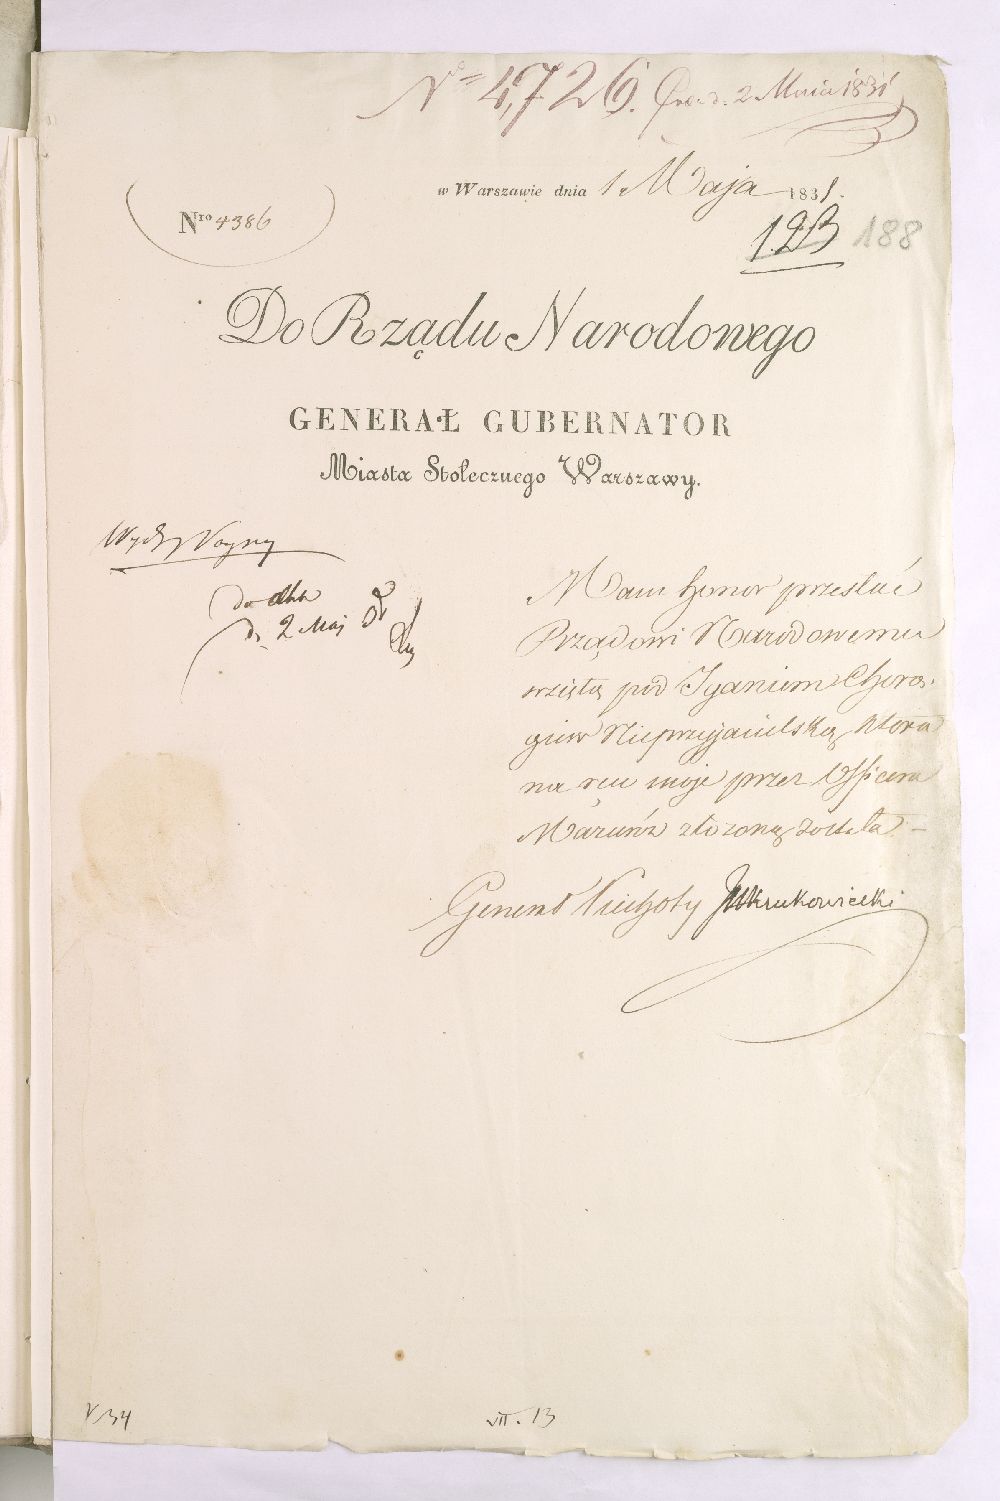 No 4,726. Pre. d. 2 Maia 1831
w Warszawie dnia 1 Maja 1831.
Nro 4386
123 188
Do Rządu Narodowego
GENERAŁ GUBERNATOR
Miasta Stołecznego Warszawy.
Wydz. Woyny
do akt
d. 2 Maj
Mam honor przesłać
Rządowi Narodowemu
wziętą pod Iganiem Chorą-
giew Nieprzyjacielską, która
na ręce moje przez Officera
Mazurów złożoną została. –
Generał Piechoty JKrukowiecki
V 34
VII. 13